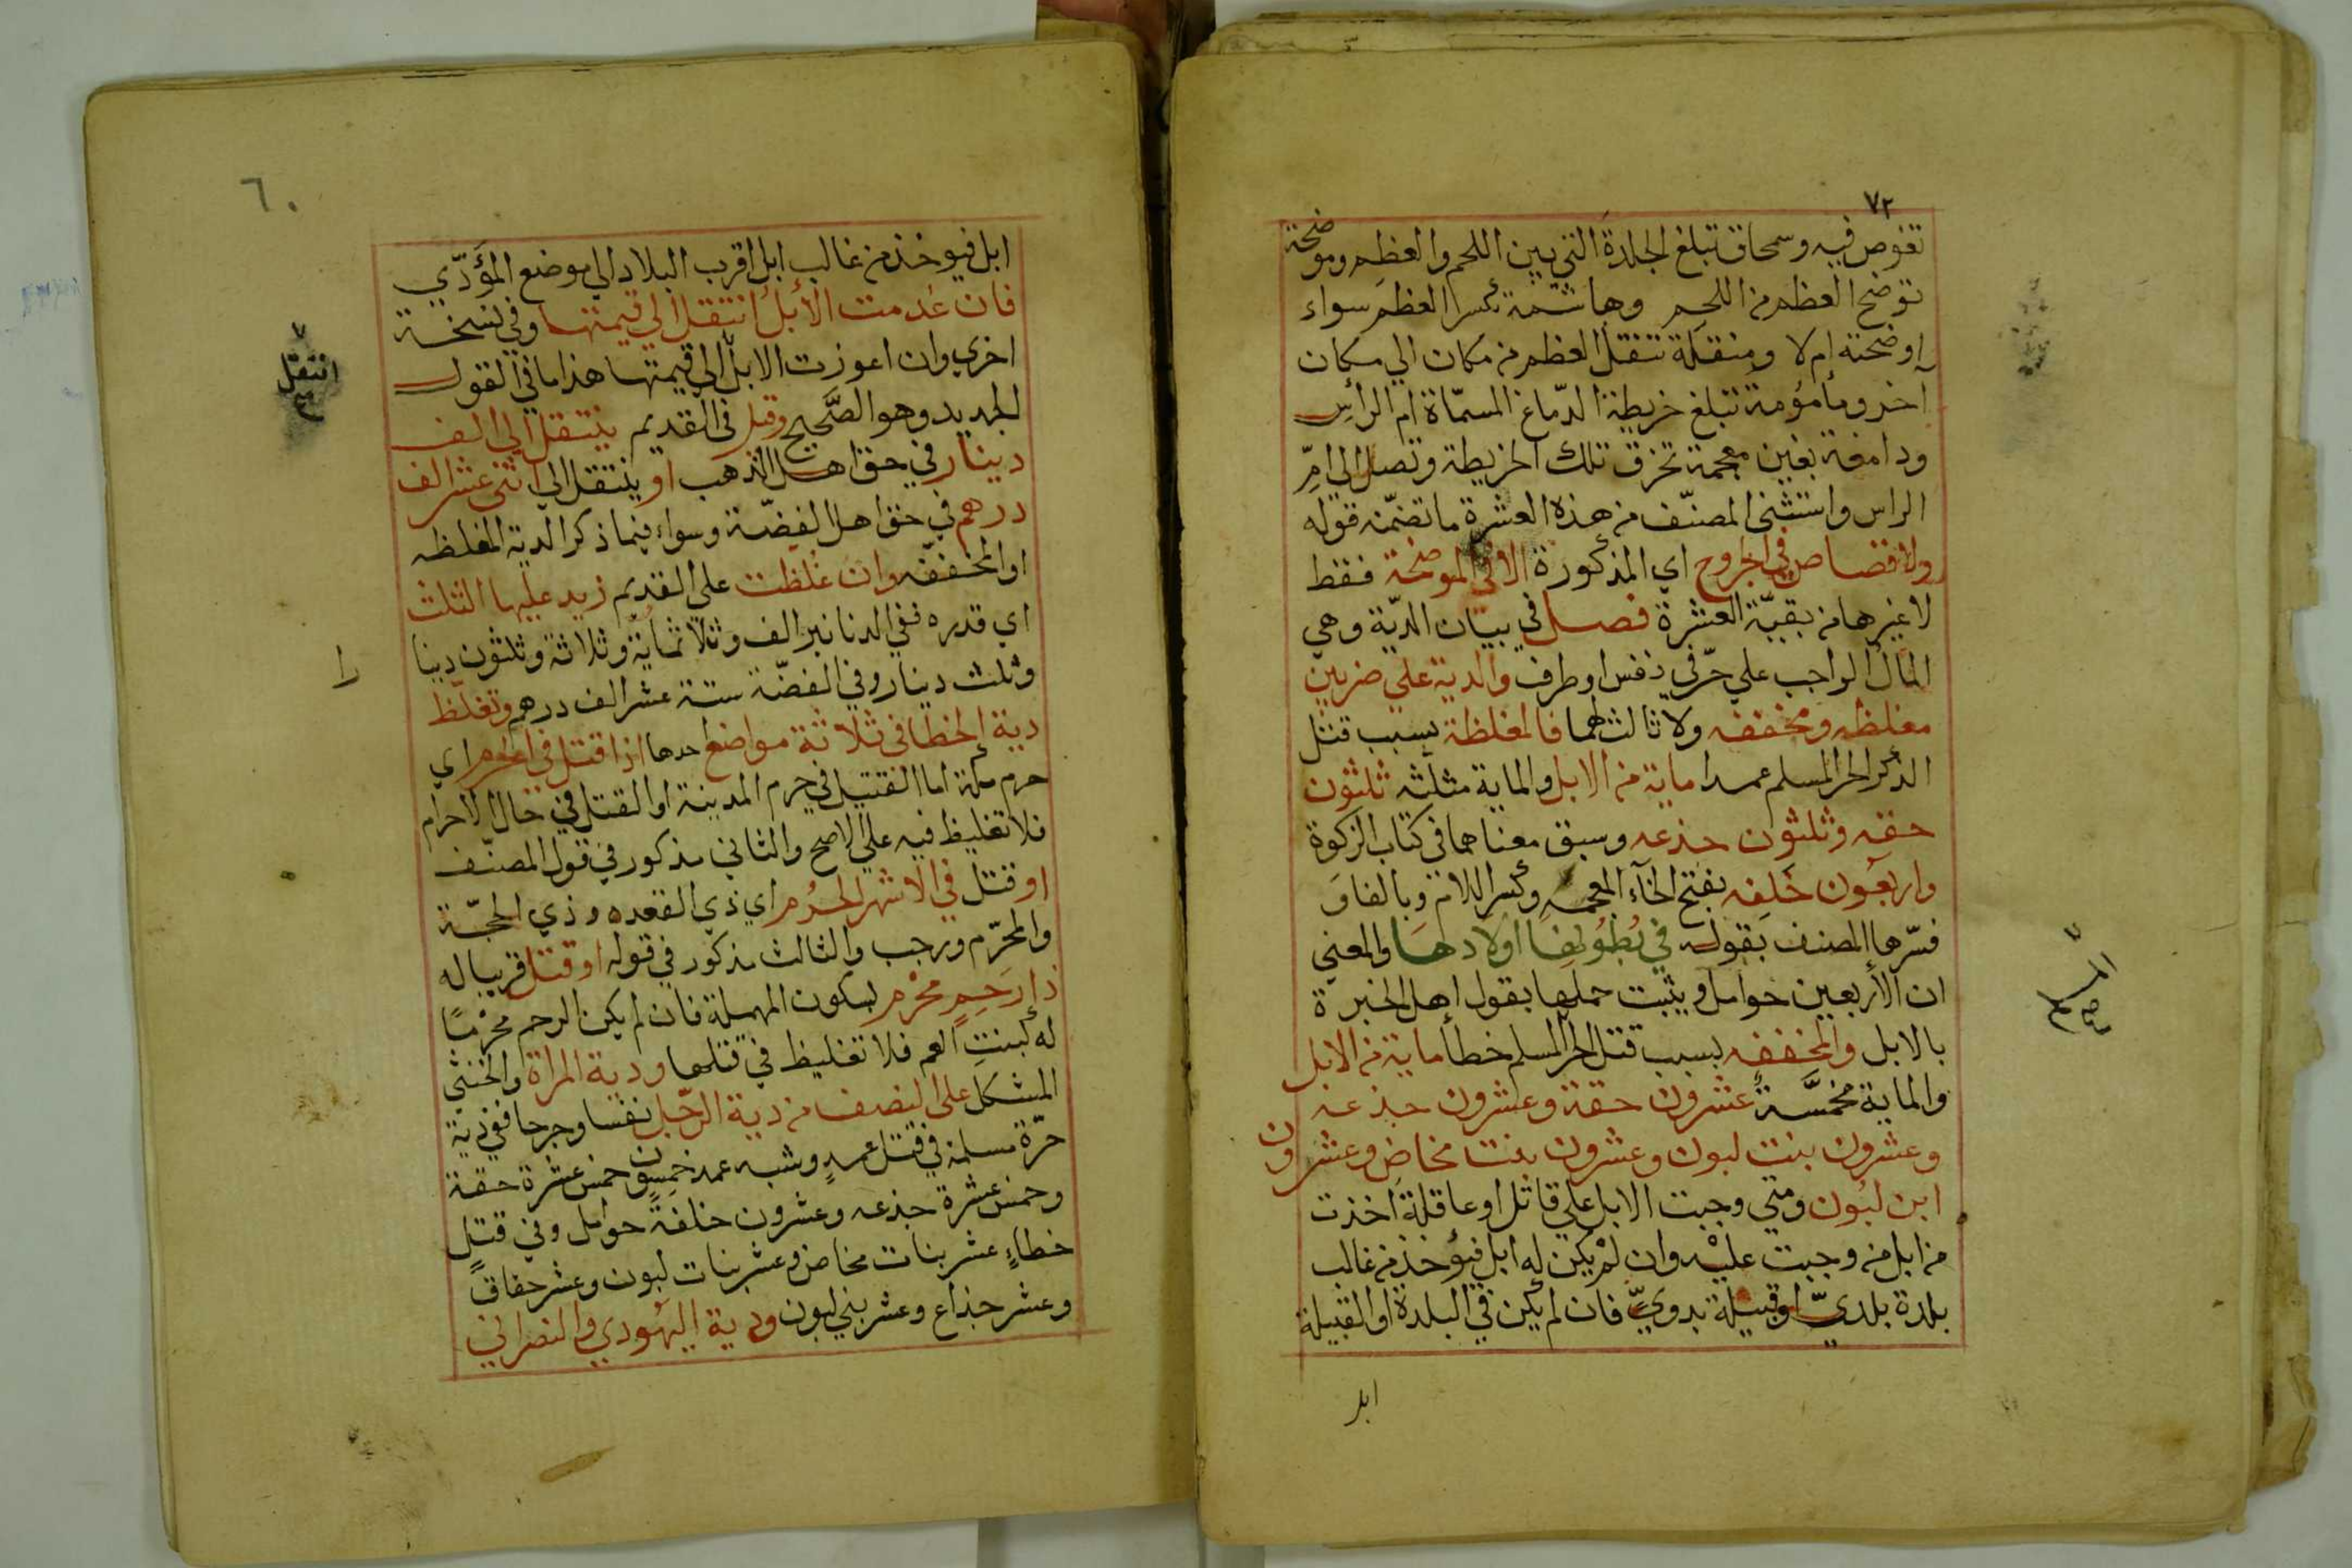 ٧٢
تغوص فيه وسمحاق تبلغ الجلدة التي بين اللحم والعظم وموضحة
توضح العظم من اللحم وهاشمة تكسر العظم سواء
اوضحته ام لا ومنقلة تنقل العظم من مكان الي مكان
آخر ومأمؤمة تبلغ خريطة الدّماغ المسمّاة ام الرأس
ودامغة بغين معجمة تخرق تلك الخريطة وتصل الي امّ
الراس واستثني المصنّف من هذه العشرة ما تضمّنه قوله
ولا قصاص في الجروح اي المذكورة الا في الموضحة فقط
لا غيرها من بقيّة العشرة فصل في بيان الديّة وهي
المال الواجب علي حرّ في نفس او طرف والدية علي ضربين
مغلظه ومخففه ولا ثالث لهما فالمغلظة بسبب قتل
الذكر الحر المسلم عمدا ماية من الابل والماية مثلثه ثلثون
حقه وثلثون جذعه وسبق معناهما في كتاب الزكوة
واربعون خَلِفه بفتح الخآء المعجمه وكسر اللام وبالفاء
فسّرها المصنف بقوله في بُطُونِها اولادها والمعني
ان الأربعين حوامل ويثبت حملها بقول اهل الخبرة
بالابل والمخففه بسبب قتل الحر المسلم خطأ ماية من الابل
والماية مخمَّسة عشرون حقة وعشرون جذعه
وعشرون بنت لبون وعشرون بنت مخاض وعشرون
ابن لبون ومتي وجبت الابل علي قاتل او عاقلة اخذت
من ابل من وجبت عليه وان لم يكن له ابل فيؤخذ من غالب
بلدة بلديّ او قبيلة بدويّ فان لم يكن في البلدة او القبيلة
ابل
المسلم
صح
٦٠
ابل فيوخذ من غالب ابل اقرب البلاد الي موضع المؤدّي
فان عُدمت الابل انتقل الي قيمتها وفي نسخة
اخري وان اعوزت الابل الي قيمتها هذا ما في القول
الجديد وهو الصَّحيح وقيل في القديم ينتقل الي الف
دينار في حق اهل الذهب او ينتقل الي اثني عشر الف
درهم في حق اهل الفضّة وسواء فيما ذكر الدية المغلظه
او المخففه وان غُلظت علي القديم زيد عليها الثلث
اي قدره ففي الدنانير الف وثلاثماية وثلاثة وثلثون دينا
وثلث دينار وفي الفضّة ستة عشر الف درهم وتغلّظ
دية الخطا في ثلاثة مواضع احدها اذا قتل في الحرم اي
حرم مكة اما القتيل في حرم المدينة او القتل في حال الاحرام
فلا تغليظ فيه علي الاصح والثاني مذكور في قول المصنّف
او قتل في الاشهر الحُرُم اي ذي القعده وذي الحجّة
والمحرّم ورجب والثالث مذكور في قوله او قتل قريبا له
ذا رَحِمٍ محْرم بسكون المهملة فان لم يكن الرحم محْرمًا
له كبنت العم فلا تغليظ في قتلها ودية المراة والخنثي
المشكل علي النصف من دية الرّجل نفسا وجرحا ففي دية
حرّة مسلمة في قتل عمدٍ وشبه عمد خمسون خمس عشرة حقة
وخمس عشرة جذعه وعشرون خلفةً حوامل وفي قتلٍ
خطاءٍ عشر بنات مخاض وعشر بنات لبون وعشر حقاق
وعشر جذاع وعشر بني لبون ودية اليهُودي والنصراني
انتقل
صح
را